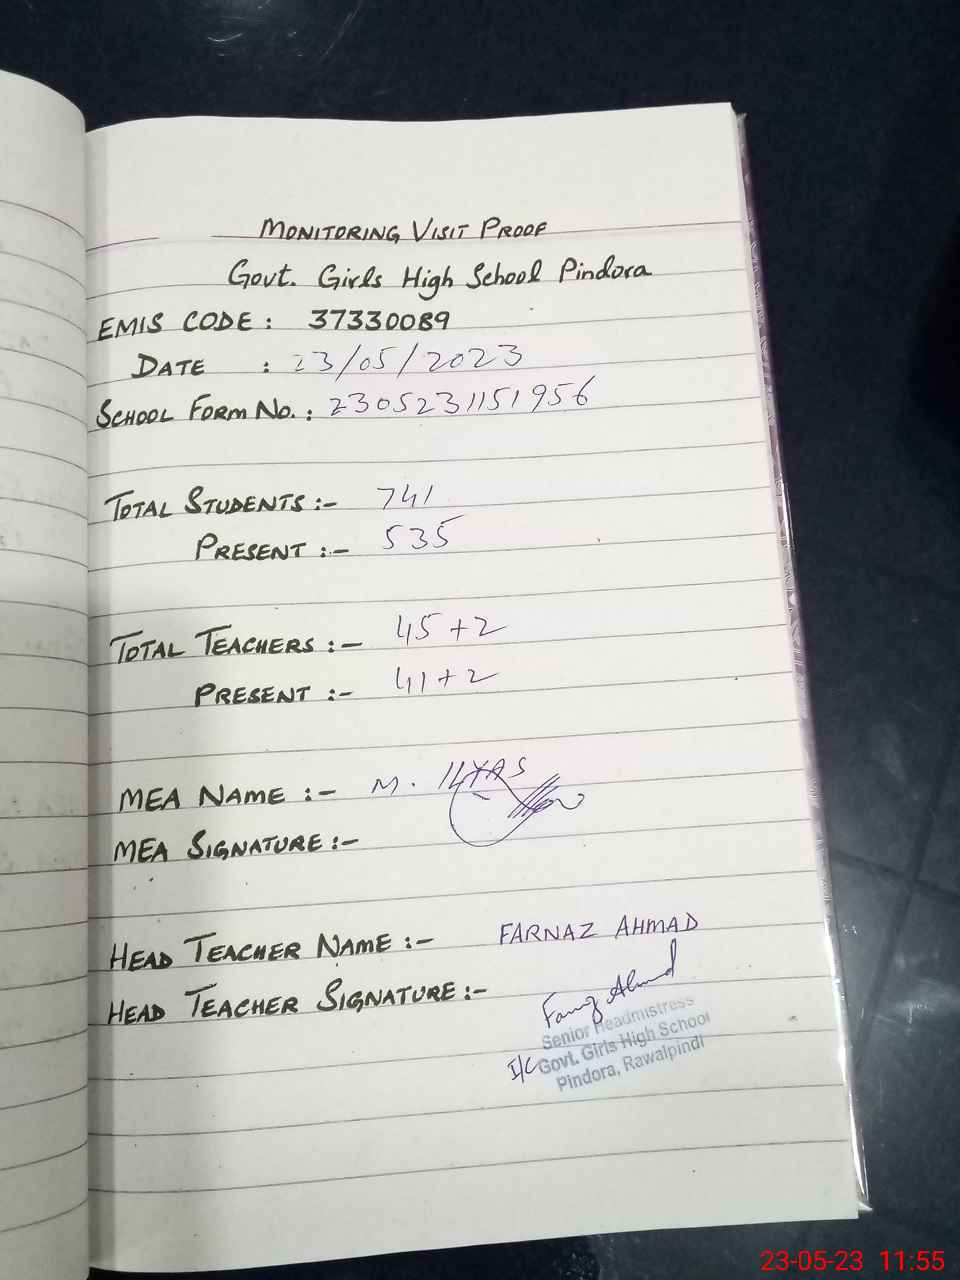 MONITORING VISIT PROOF
Govt. Girls High School Pindora
EMIS CODE : 37330089
DATE : 23/05/2023
SCHOOL FORM No. : 2305231151956
TOTAL STUDENTS :- 741
PRESENT :- 535
TOTAL TEACHERS :- 45+2
PRESENT :- 41+2
MEA NAME :- M. ILYAS
MEA SIGNATURE :-
HEAD TEACHER NAME :- FARNAZ AHMAD
HEAD TEACHER SIGNATURE :- Farnaz Ahmad
Senior Headmistress
I/C Govt. Girls High School
Pindora, Rawalpindi
23-05-23 11:55